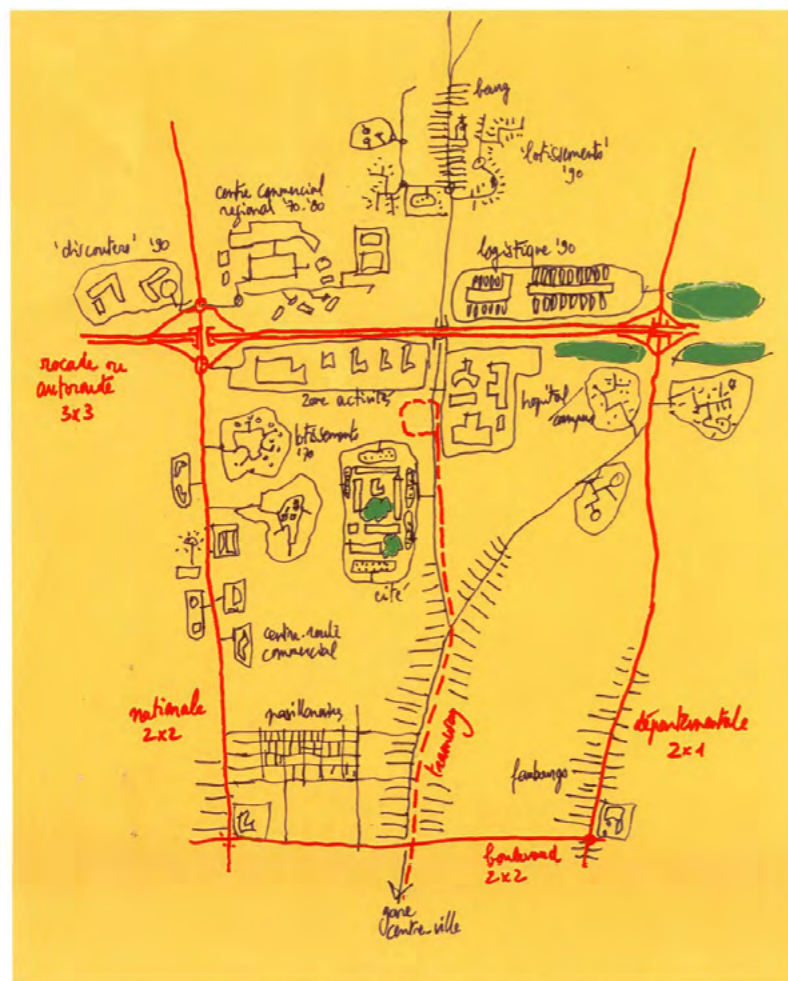 bourg
'lotissements'
'90
centre commercial
regional '70-'80
'discouters' '90
logistique '90
rocade ou
autoroute
3x3
zone activités
hopital
campus
lotissements
'70
cité
centre-route
commercial
nationale
2x2
pavillonaires
tramway
départementale
2x1
faubourgs
boulevard
2x2
gare
centre-ville